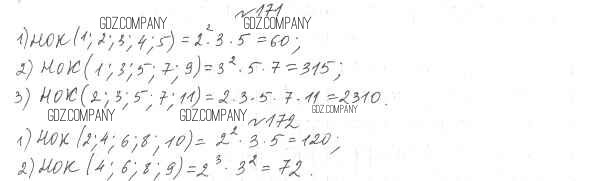 №171
GDZ.COMPANY GDZ.COMPANY
1) НОК(1; 2; 3; 4; 5) = 2² · 3 · 5 = 60;
2) НОК(1; 3; 5; 7; 9) = 3² · 5 · 7 = 315;
3) НОК(2; 3; 5; 7; 11) = 2 · 3 · 5 · 7 · 11 = 2310.
GDZ.COMPANY GDZ.COMPANY GDZ.COMPANY
№172
1) НОК(2; 4; 6; 8; 10) = 2² · 3 · 5 = 120;
2) НОК(4; 6; 8; 9) = 2³ · 3² = 72.